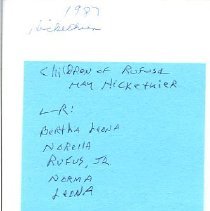 1987
Nickethier
CHILDREN OF RUFUS &
MAY NICKETHIER
L-R:
BERTHA LEONA
NORENA
RUFUS, JR
NORMA
LEONA